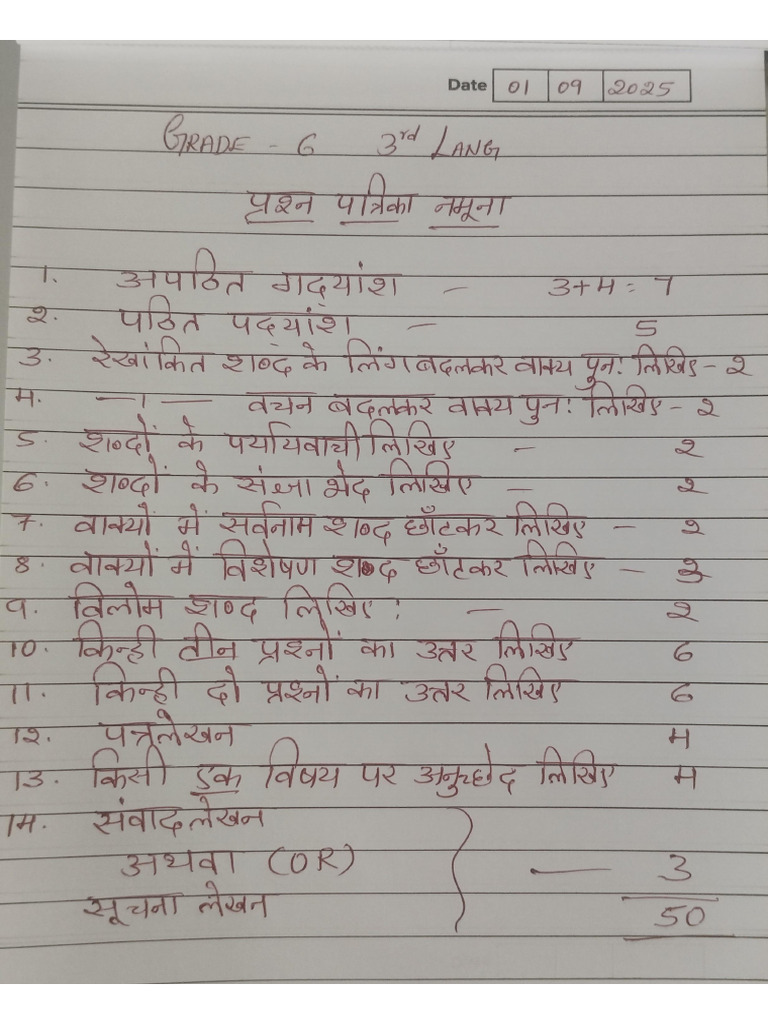 Date 01 09 2025
GRADE - 6 3rd LANG
प्रश्न पत्रिका नमूना
1. अपठित गद्यांश - 3+4= 7
२. पठित पद्यांश - 5
3. रेखांकित शब्द के लिंग बदलकर वाक्य पुनः लिखिए - २
4. —।— वचन बदलकर वाक्य पुनः लिखिए - २
5. शब्दों के पर्यायवाची लिखिए - २
6. शब्दों के संज्ञा भेद लिखिए - २
7. वाक्यों में सर्वनाम शब्द छाँटकर लिखिए - २
8. वाक्यों में विशेषण शब्द छाँटकर लिखिए - 3
9. विलोम शब्द लिखिए: - २
10. किन्ही तीन प्रश्नों का उत्तर लिखिए 6
11. किन्ही दो प्रश्नों का उत्तर लिखिए 6
1२. पत्रलेखन 4
13. किसी एक विषय पर अनुच्छेद लिखिए 4
14. संवादलेखन
अथवा (OR) — 3
सूचना लेखन 50